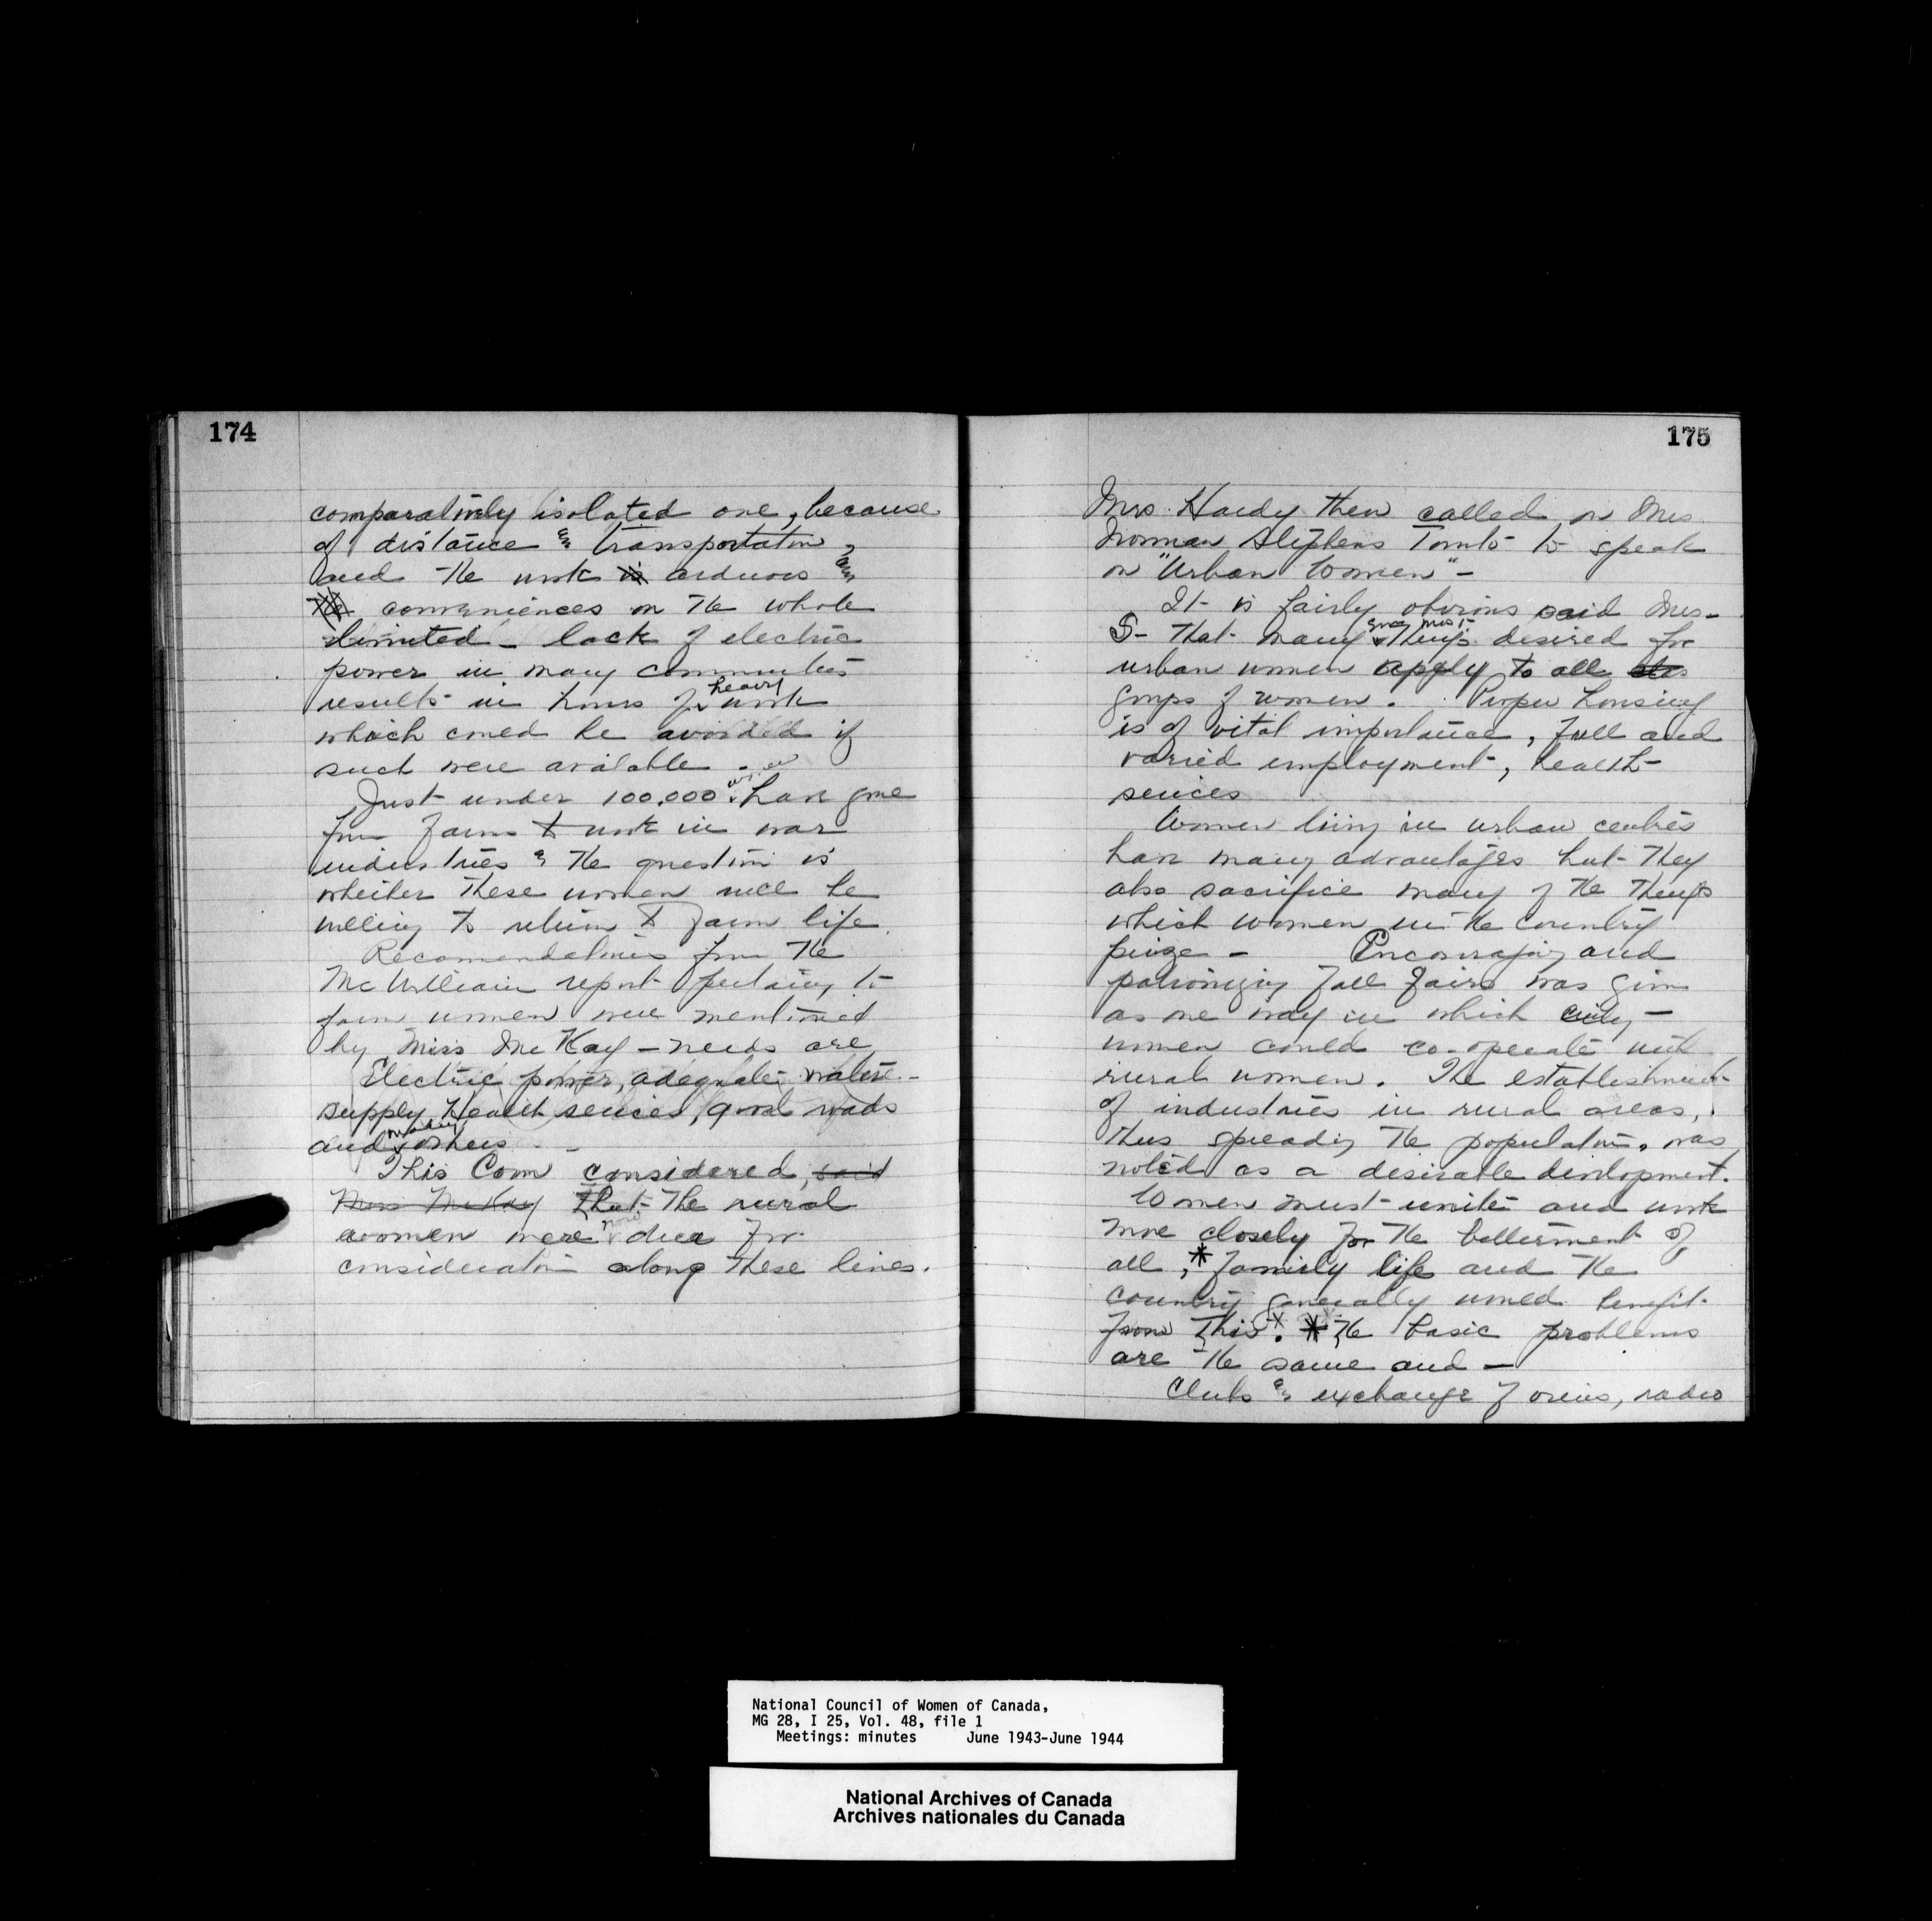 174
comparatively isolated one, because
of distance & transportation,
and the work is arduous &
The conveniences on the whole
limited - lack of electric
power in many communities
results in hours of heavy work
which could be avoided if
such were available.
Just under 100,000 have gone
from farms to work in war
industries & the question is
whether these women will be
willing to return to farm life.
Recomendations from the
McWilliam report pertaining to
farm women were mentioned
by Miss McKay - needs are
Electric power, adequate water-
supply, Health services, good roads
and many others
This Com considered, said
Miss McKay that the rural
women were now due for
consideration along these lines.
175
Mrs. Hardy then called on Mrs
Norman Stephens Toronto to speak
on "Urban Women" -
It is fairly obvious said Mrs-
S- that many things desired for
urban women apply to all
groups of women. Proper housing
is of vital importance, full and
varied employment, health-
services
Women living in urban centres
have many advantages but they
also sacrifice many of the things
which women in the country
prize - Encouraging and
patronizing fall fairs was given
as one way in which city -
women could co-operate with
rural women. The establishment
of industries in rural areas,
thus spreading the population, was
noted as a desirable development.
Women must unite and work
more closely for the betterment of
all, * family life and the
country generally would benefit
from this x. * The basic problems
are the same and -
Clubs & exchange of views, radio
National Council of Women of Canada,
MG 28, I 25, Vol. 48, file 1
Meetings: minutes June 1943-June 1944
National Archives of Canada
Archives nationales du Canada